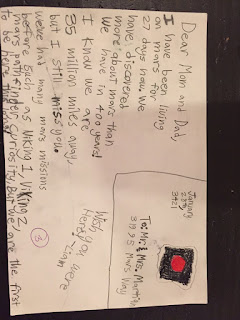 Dear Mom and Dad,
I have been living
on mars for
27 days now. We
have discovered
more about mars than
we have in two years
I know we are
35 million miles away,
but I still miss you.
We've had many mars missions
before such as Viking 1, Viking 2,
mars pathfinder, curiosity, but we are the first
to be here
January
28th,
3421
To: Mr. & Mrs. Martin
Mars Way
Wish you were
here! -Liam
3